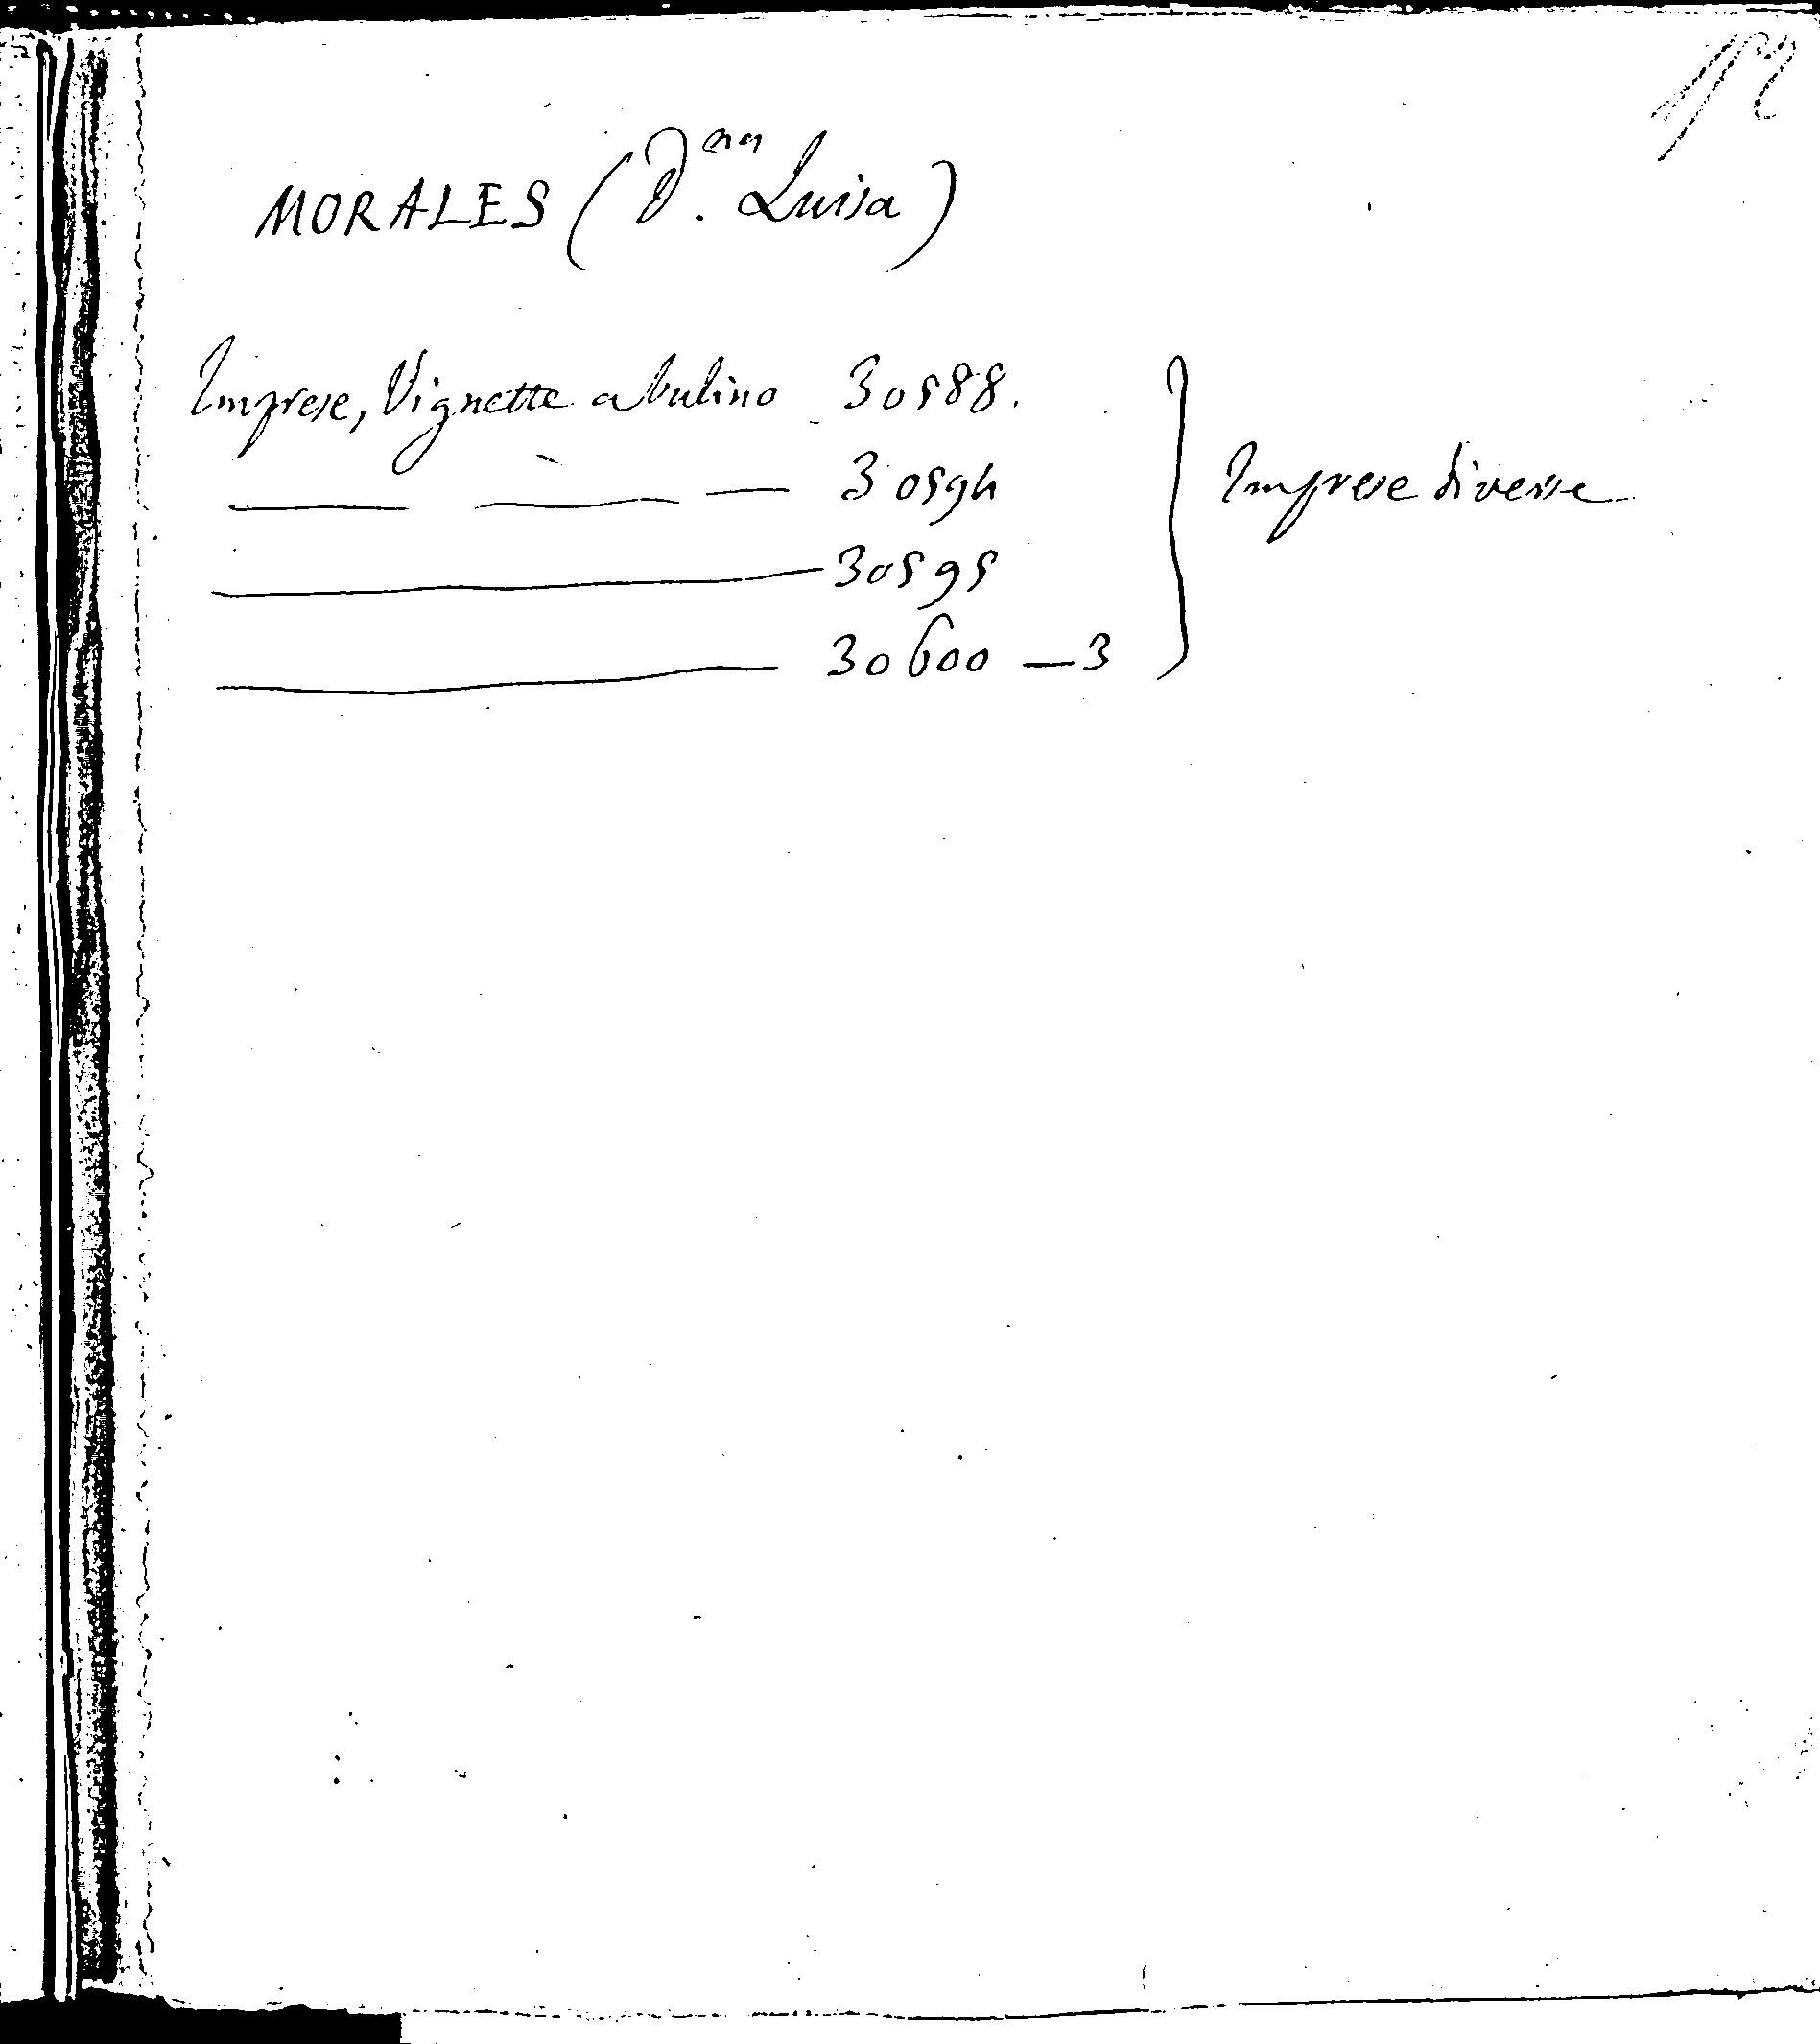 152
MORALES (D.nna Luisa)
Imprese, Vignette a bulino 30588.
— — — 30594
— 30595
— 30600 — 3
} Imprese diverse